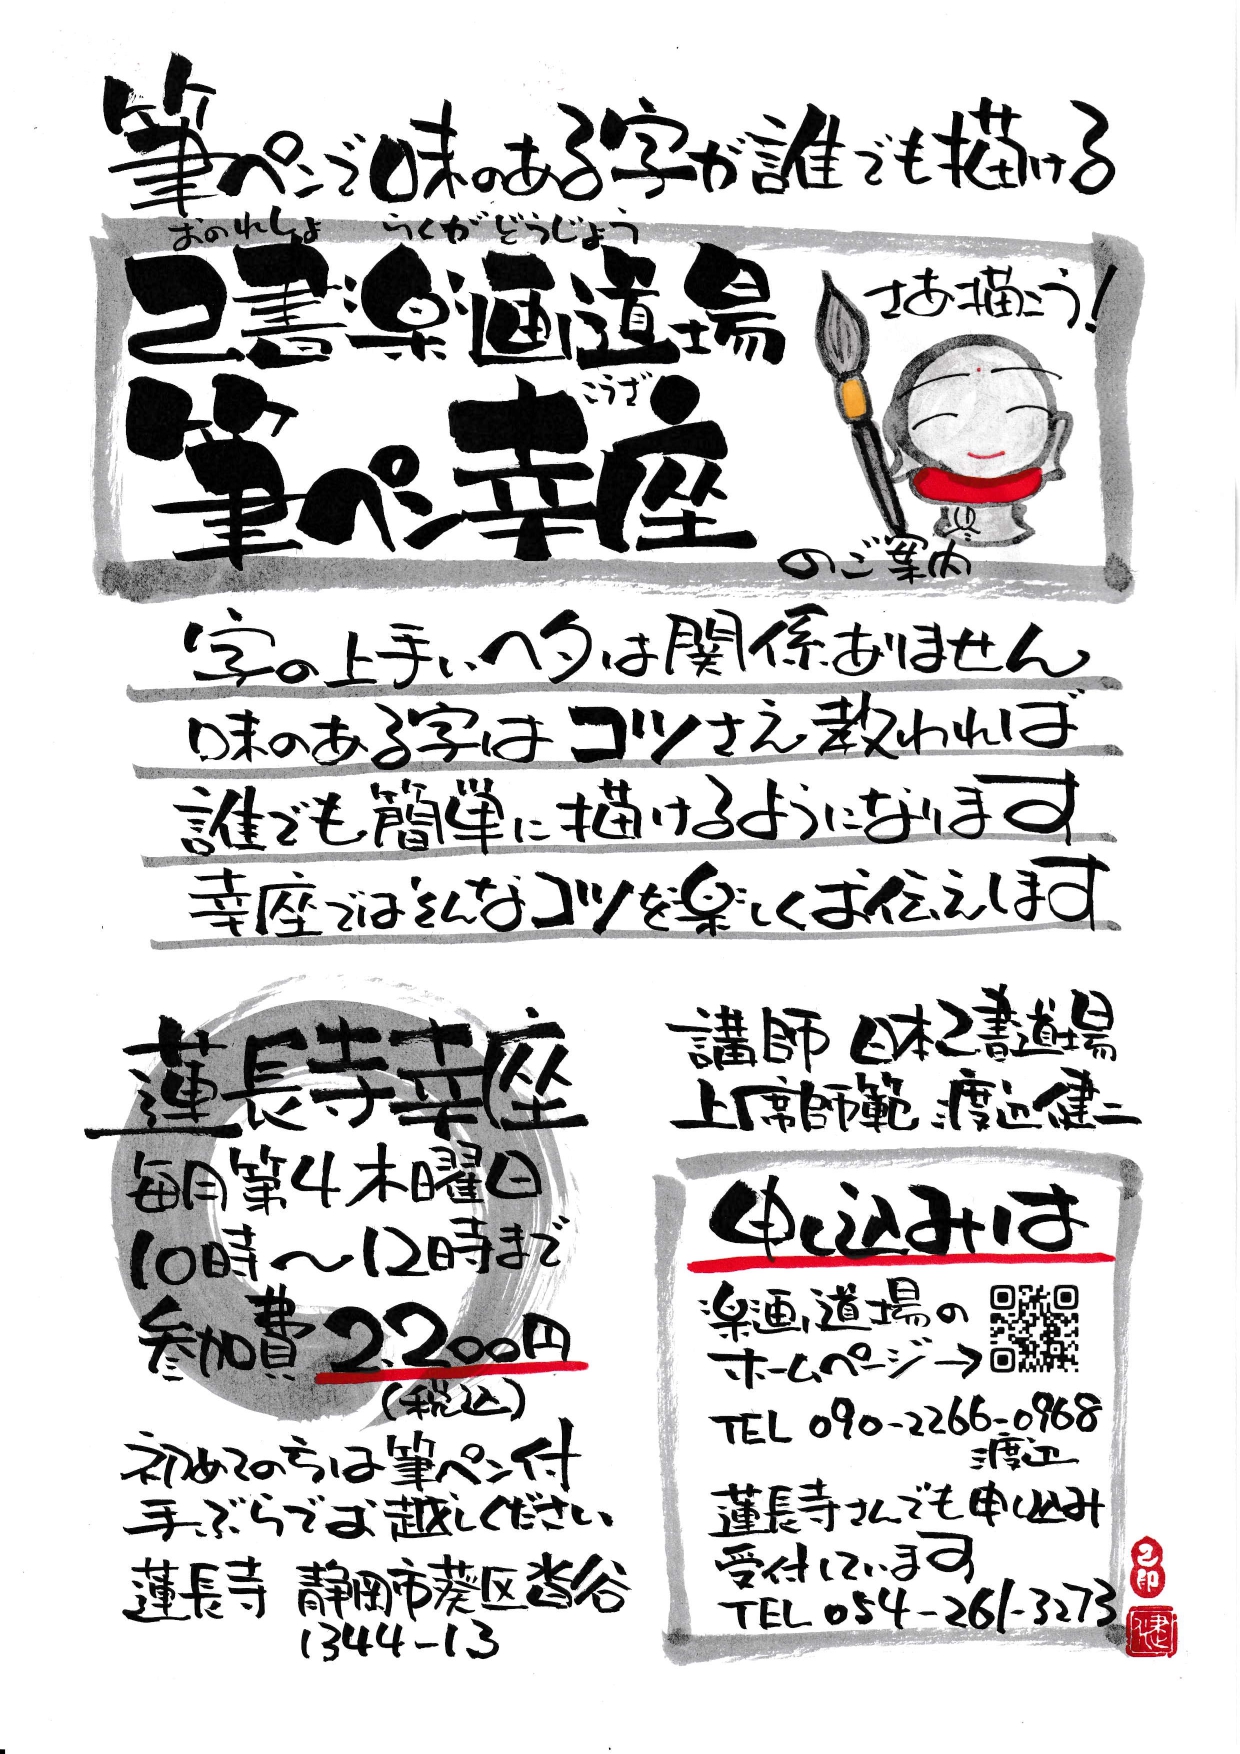 筆ペンで味のある字が誰でも描ける
おのれしょ らくがどうじょう
己書楽画道場
こうざ
筆ペン幸座
のご案内
さあ描こう!
字の上手いヘタは関係ありません
味のある字はコツさえ教われば
誰でも簡単に描けるようになります
幸座ではそんなコツを楽しくお伝えします
蓮長寺幸座
毎月第4木曜日
10時〜12時まで
参加費2,200円
(税込)
初めての方は筆ペン付
手ぶらでお越しください
蓮長寺 静岡市葵区沓谷
1344-13
講師 日本己書道場
上席師範 渡辺健二
申し込みは
楽画道場の
ホームページ→
TEL 090-2266-0968
渡辺
蓮長寺さんでも申し込み
受付しています
TEL 054-261-3273
己
印
健